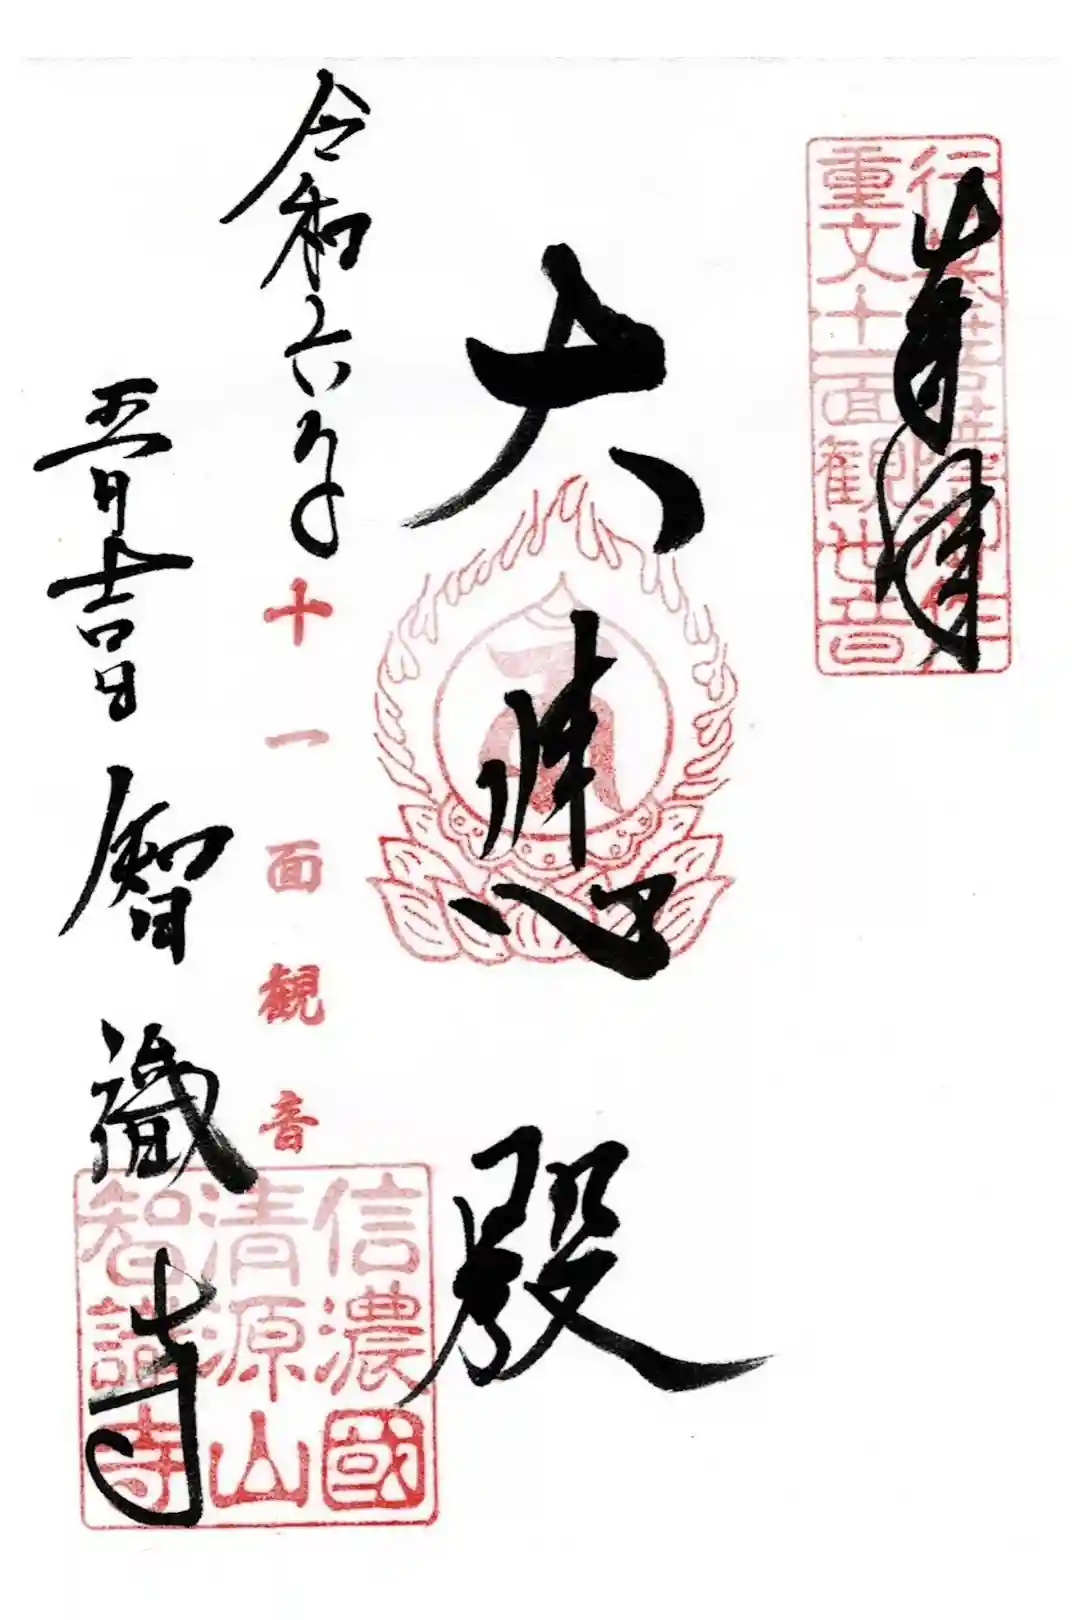 奉拝
行基菩薩御作
重文十一面観世音
大悲殿
十一面観音
令和六年
五月吉日
智識寺
信濃國
清源山
智識寺